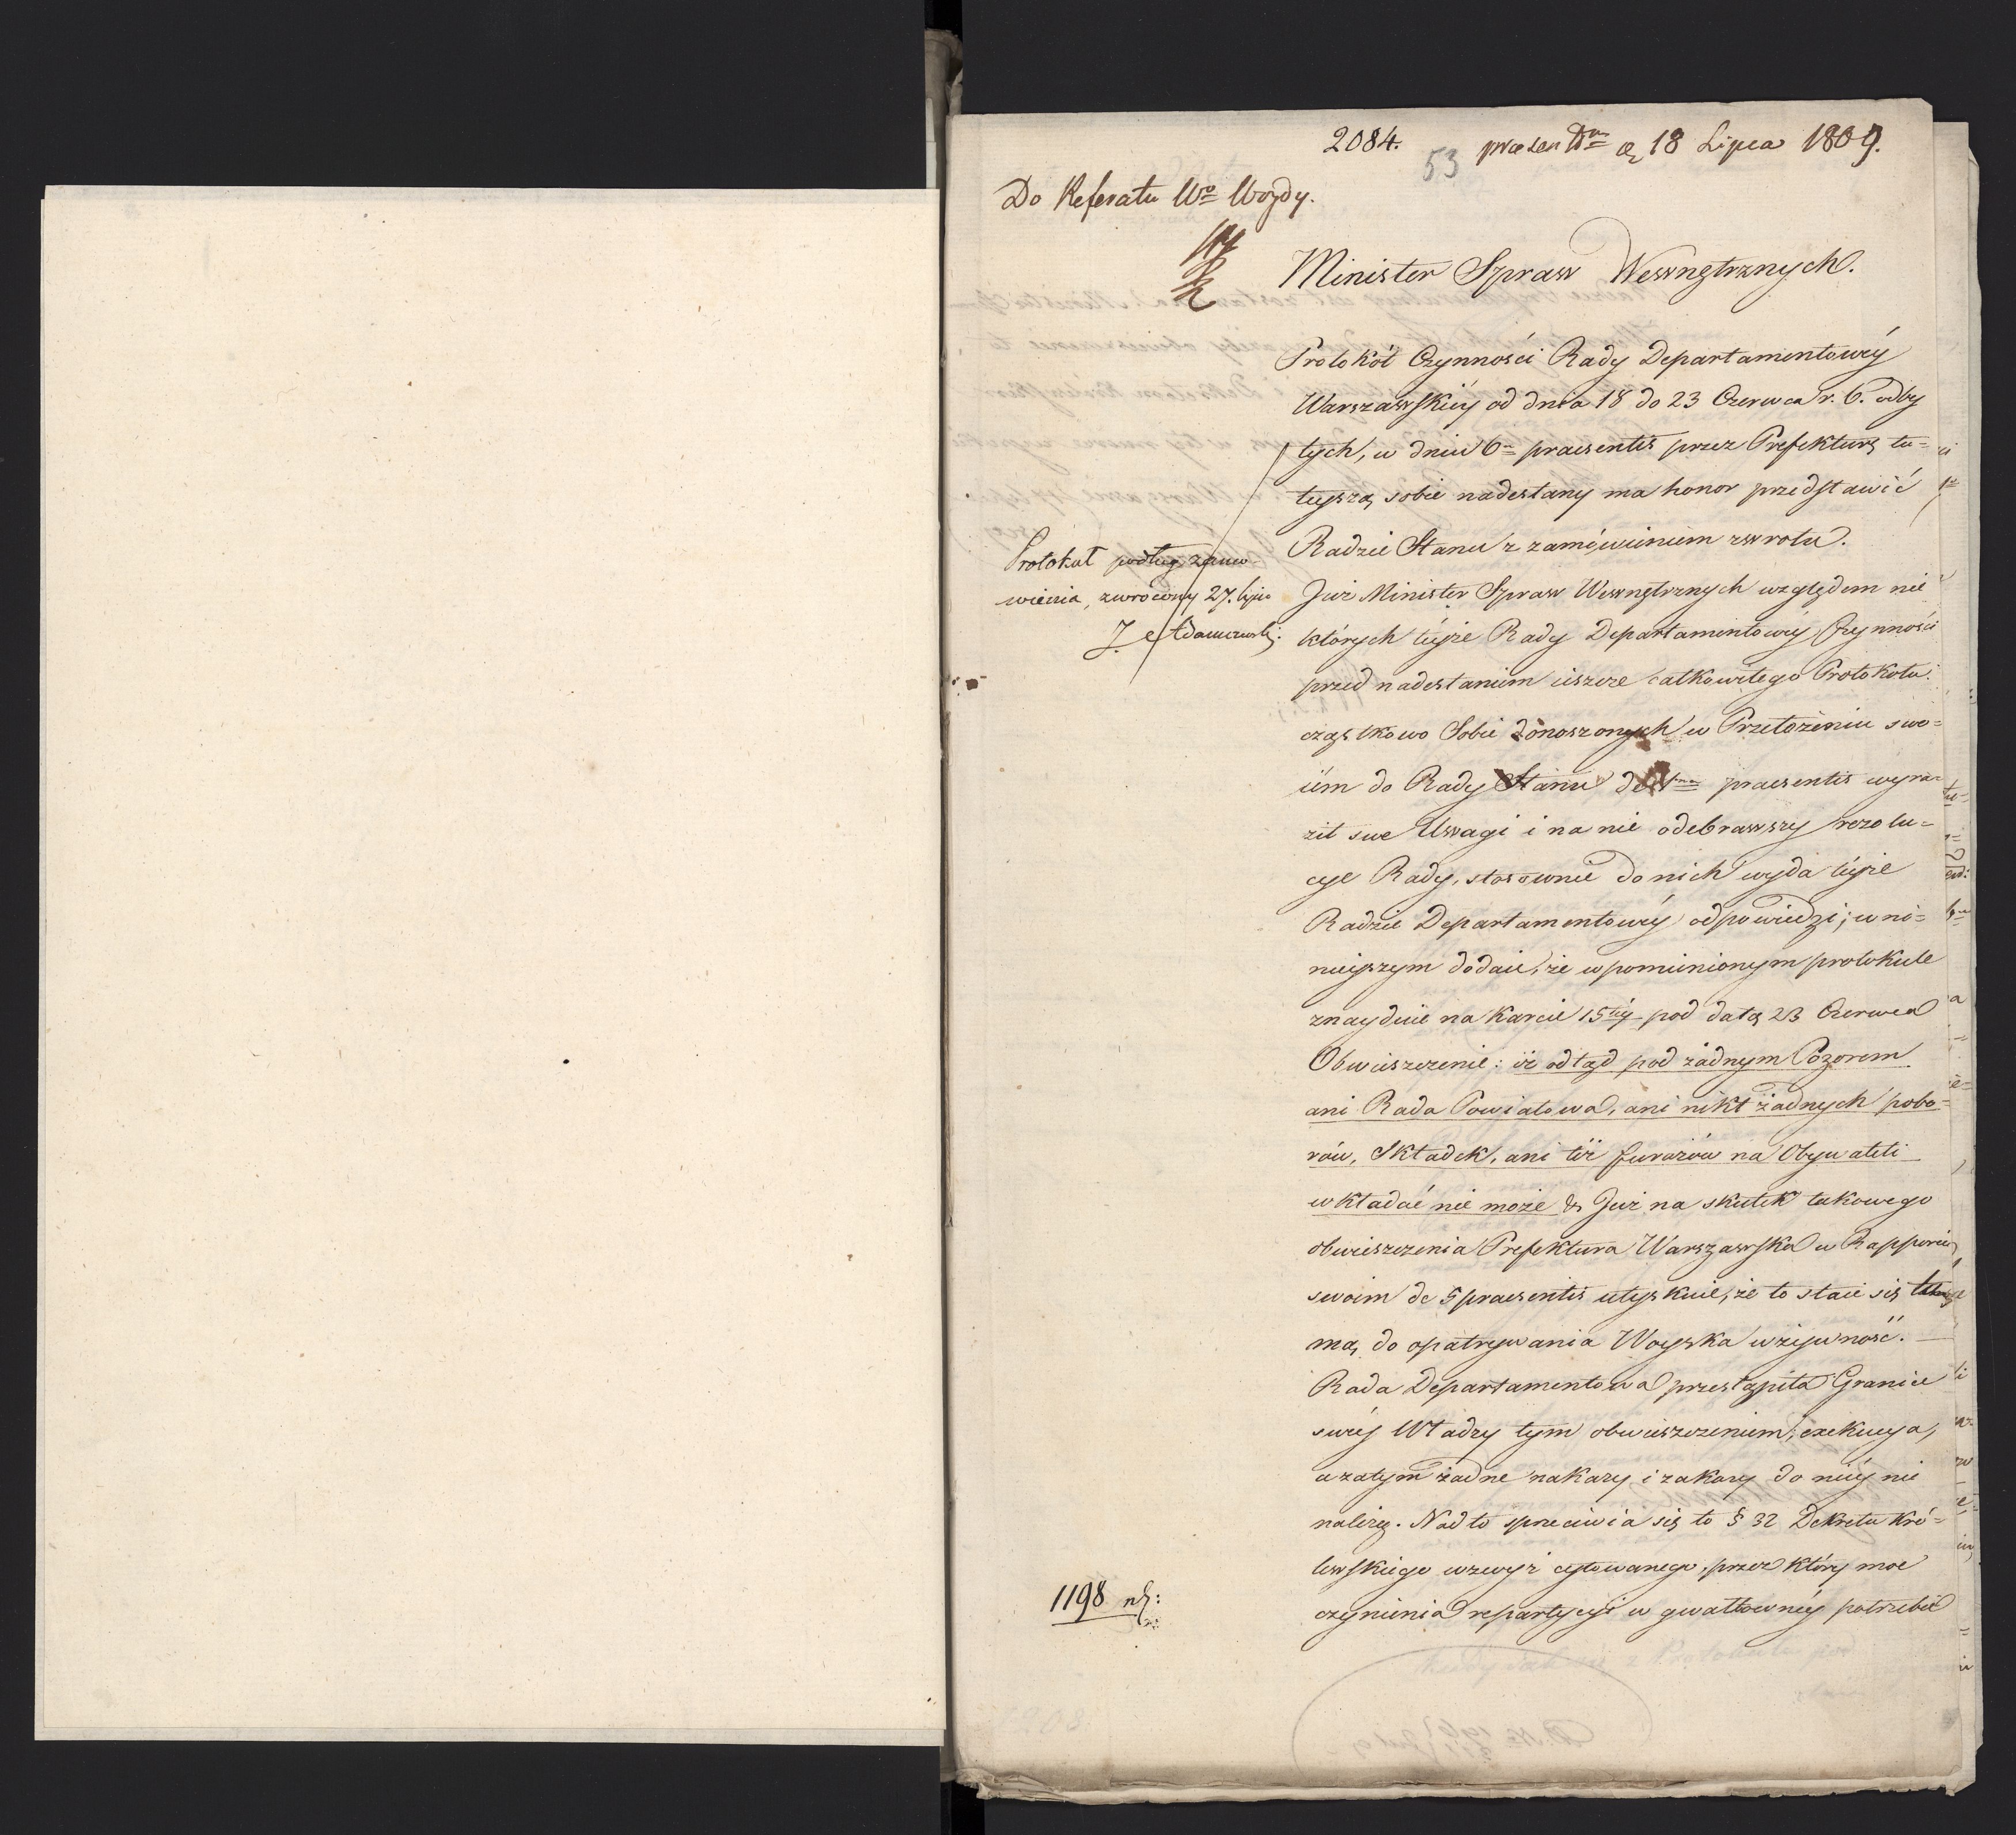 2084. 53 praesentm d 18 Lipca 1809.
Do Referatu Wo Woydy.
Minister Spraw Wewnętrznych.
Protokół Czynności Rady Departamentowéy
Warszawskiéy od dnia 18 do 23 Czerwca r. b. odby
tych, w dniu 6m praesentis przez Prefekturę tu=
teyszą sobie nadesłany ma honor przedstawić
Radzie Stanu z zamówieniem zwrotu.
Protokuł podług zamó-
wienia, zwrócony 27. lipca
J. Adamczewski
Już Minister Spraw Wewnętrznych względem nie
których téyże Rady Departamentowéy Czynności
przed nadesłaniem ieszcze całkowitego Protokołu
cząstkowo Sobie donoszonych w Przełożeniu swo=
iém do Rady Stanu de praesentis wyra=
ził swe Uwagi i na nie odebrawszy rezolu=
cye Rady, stosownie do nich wyda téyże
Radzie Departamentowéy odpowiedzi; w ni=
nieyszym dodaie, że w pomienionym protokule
znayduie na Karcie 15téy pod datą 23 Czerwca
Obwieszczenie: iż odtąd pod żadnym Pozorem
ani Rada Powiatowa, ani nikt żadnych pobo=
rów, Składek, ani téż furażów na Obywateli
wkładać nie może & Już na skutek takowego
obwieszczenia Prefektura Warszawska w Rapporcie
swoim de 5 praesentis utyskuie, że to staie się
mą do opatrywania Woyska w żywność.
Rada Departamentowa przestąpiła Granice
swéy Władzy tym obwieszczeniem, exekucya,
a zatym żadne nakazy i zakazy do niéy nie
należą. Nadto sprzeciwia się to § 32 Dekretu Kró=
lewskiego wzwyż cytowanego, przez który moc
czynienia repartycyi w gwałtownéy potrzebie
1198